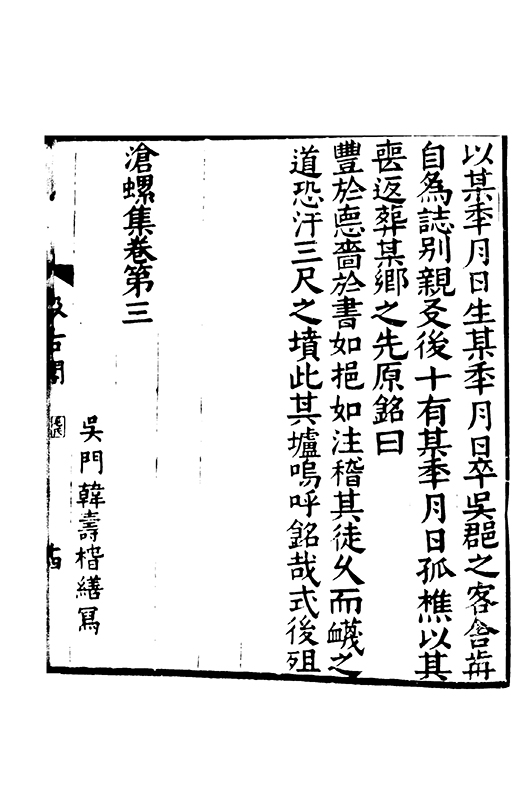 以某秊月日生某秊月日卒吳郡之客舍葬
自為誌別親友後十有某秊月日孤樵以其
喪返葬某鄉之先原銘曰
豐於悳嗇於書如挹如注稽其徒乆而衊之
道恐汗三尺之墳此其壚嗚呼銘哉式後殂
滄螺集卷第三
吳門韓壽楷繕寫